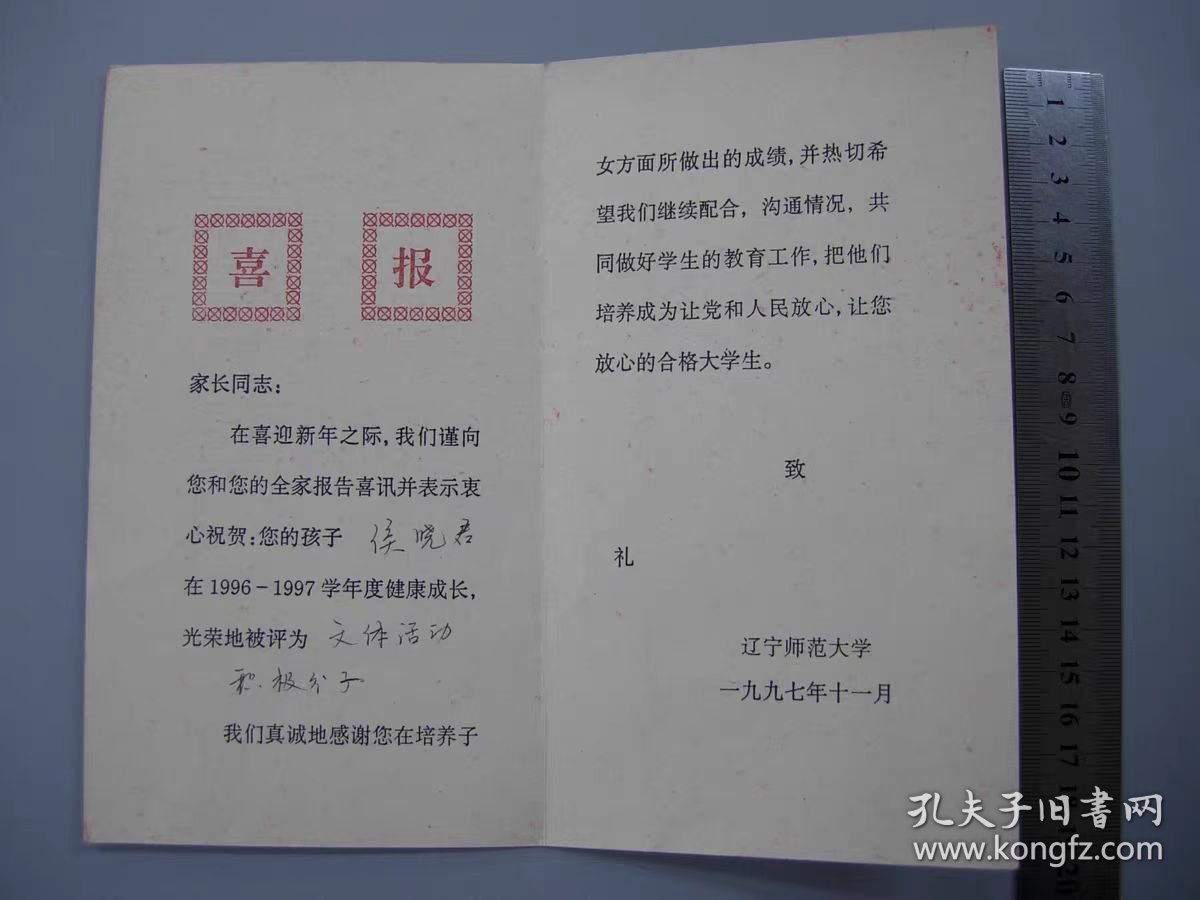 喜 报
家长同志：
在喜迎新年之际，我们谨向
您和您的全家报告喜讯并表示衷
心祝贺：您的孩子 侯晓君
在1996－1997学年度健康成长，
光荣地被评为 文体活动
积极分子
我们真诚地感谢您在培养子
女方面所做出的成绩，并热切希
望我们继续配合，沟通情况，共
同做好学生的教育工作，把他们
培养成为让党和人民放心，让您
放心的合格大学生。
致
礼
辽宁师范大学
一九九七年十一月
mm
1
2
3
4
5
6
7
8
9
10
11
12
13
14
15
16
17
20
孔夫子旧书网
www.kongfz.com